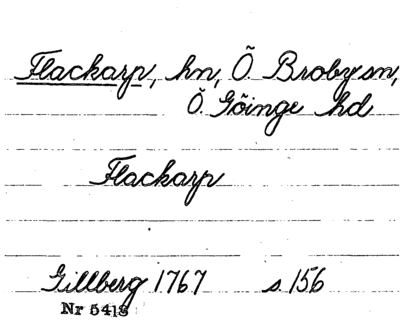 Flackarp, hn, Ö. Broby sn,
Ö. Göinge hd
Flackarp
Gillberg 1767 s. 156
Nr 5418